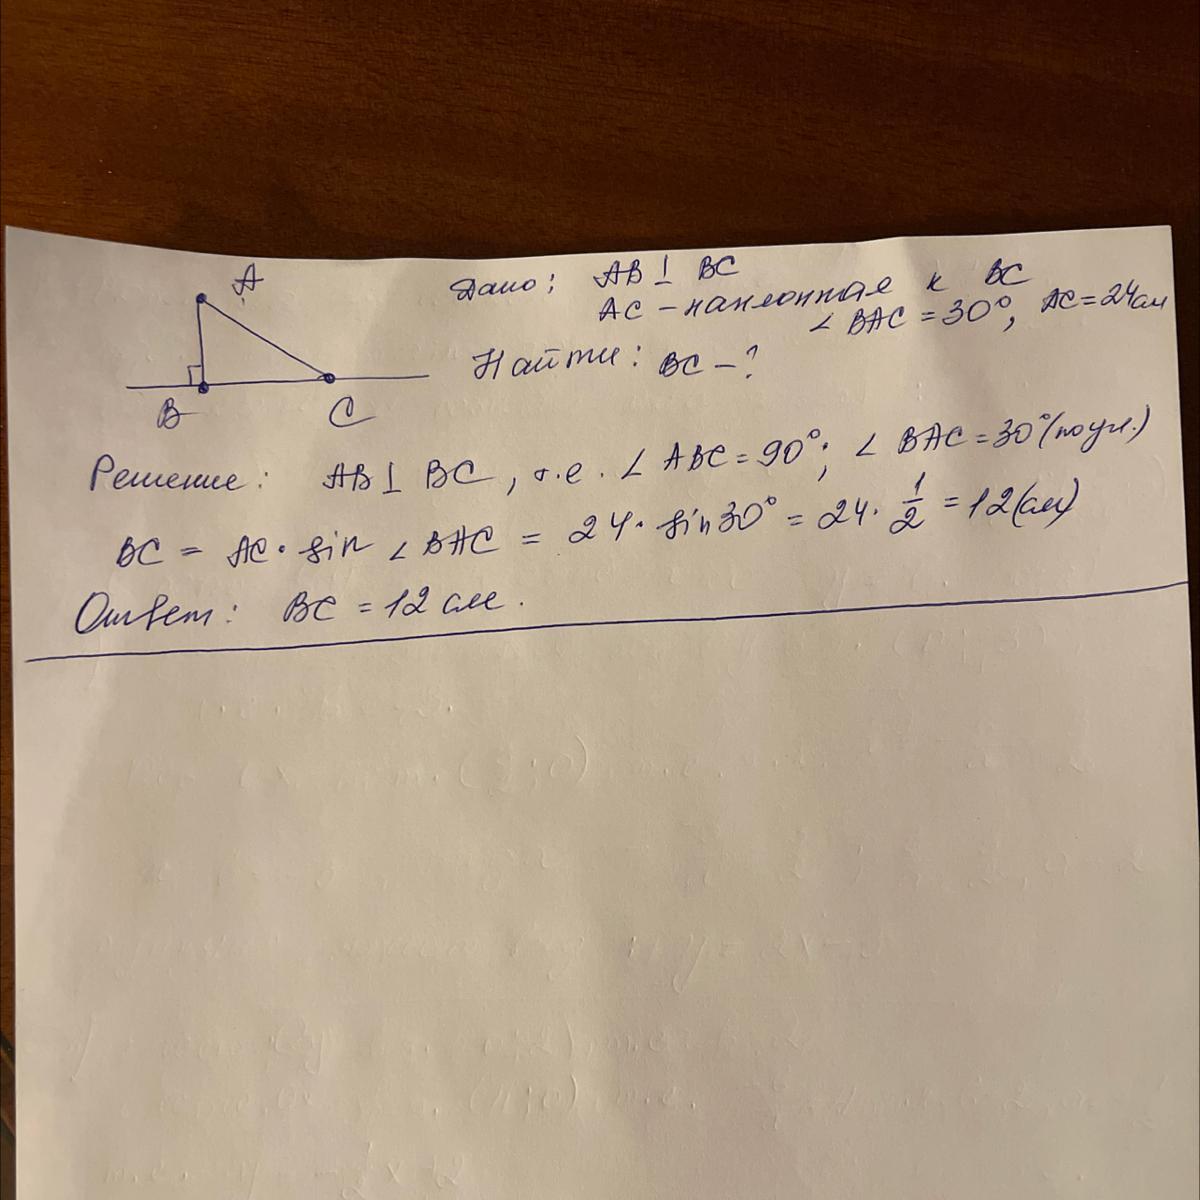 A
B
C
Дано: AB ⊥ BC
AC - наклонная к BC
∠ BAC = 30°, AC = 24 см
Найти: BC - ?
Решение: AB ⊥ BC, т.е. ∠ ABC = 90°; ∠ BAC = 30° (по усл.)
BC = AC · sin ∠ BAC = 24 · sin 30° = 24 · 1/2 = 12 (см)
Ответ: BC = 12 см.